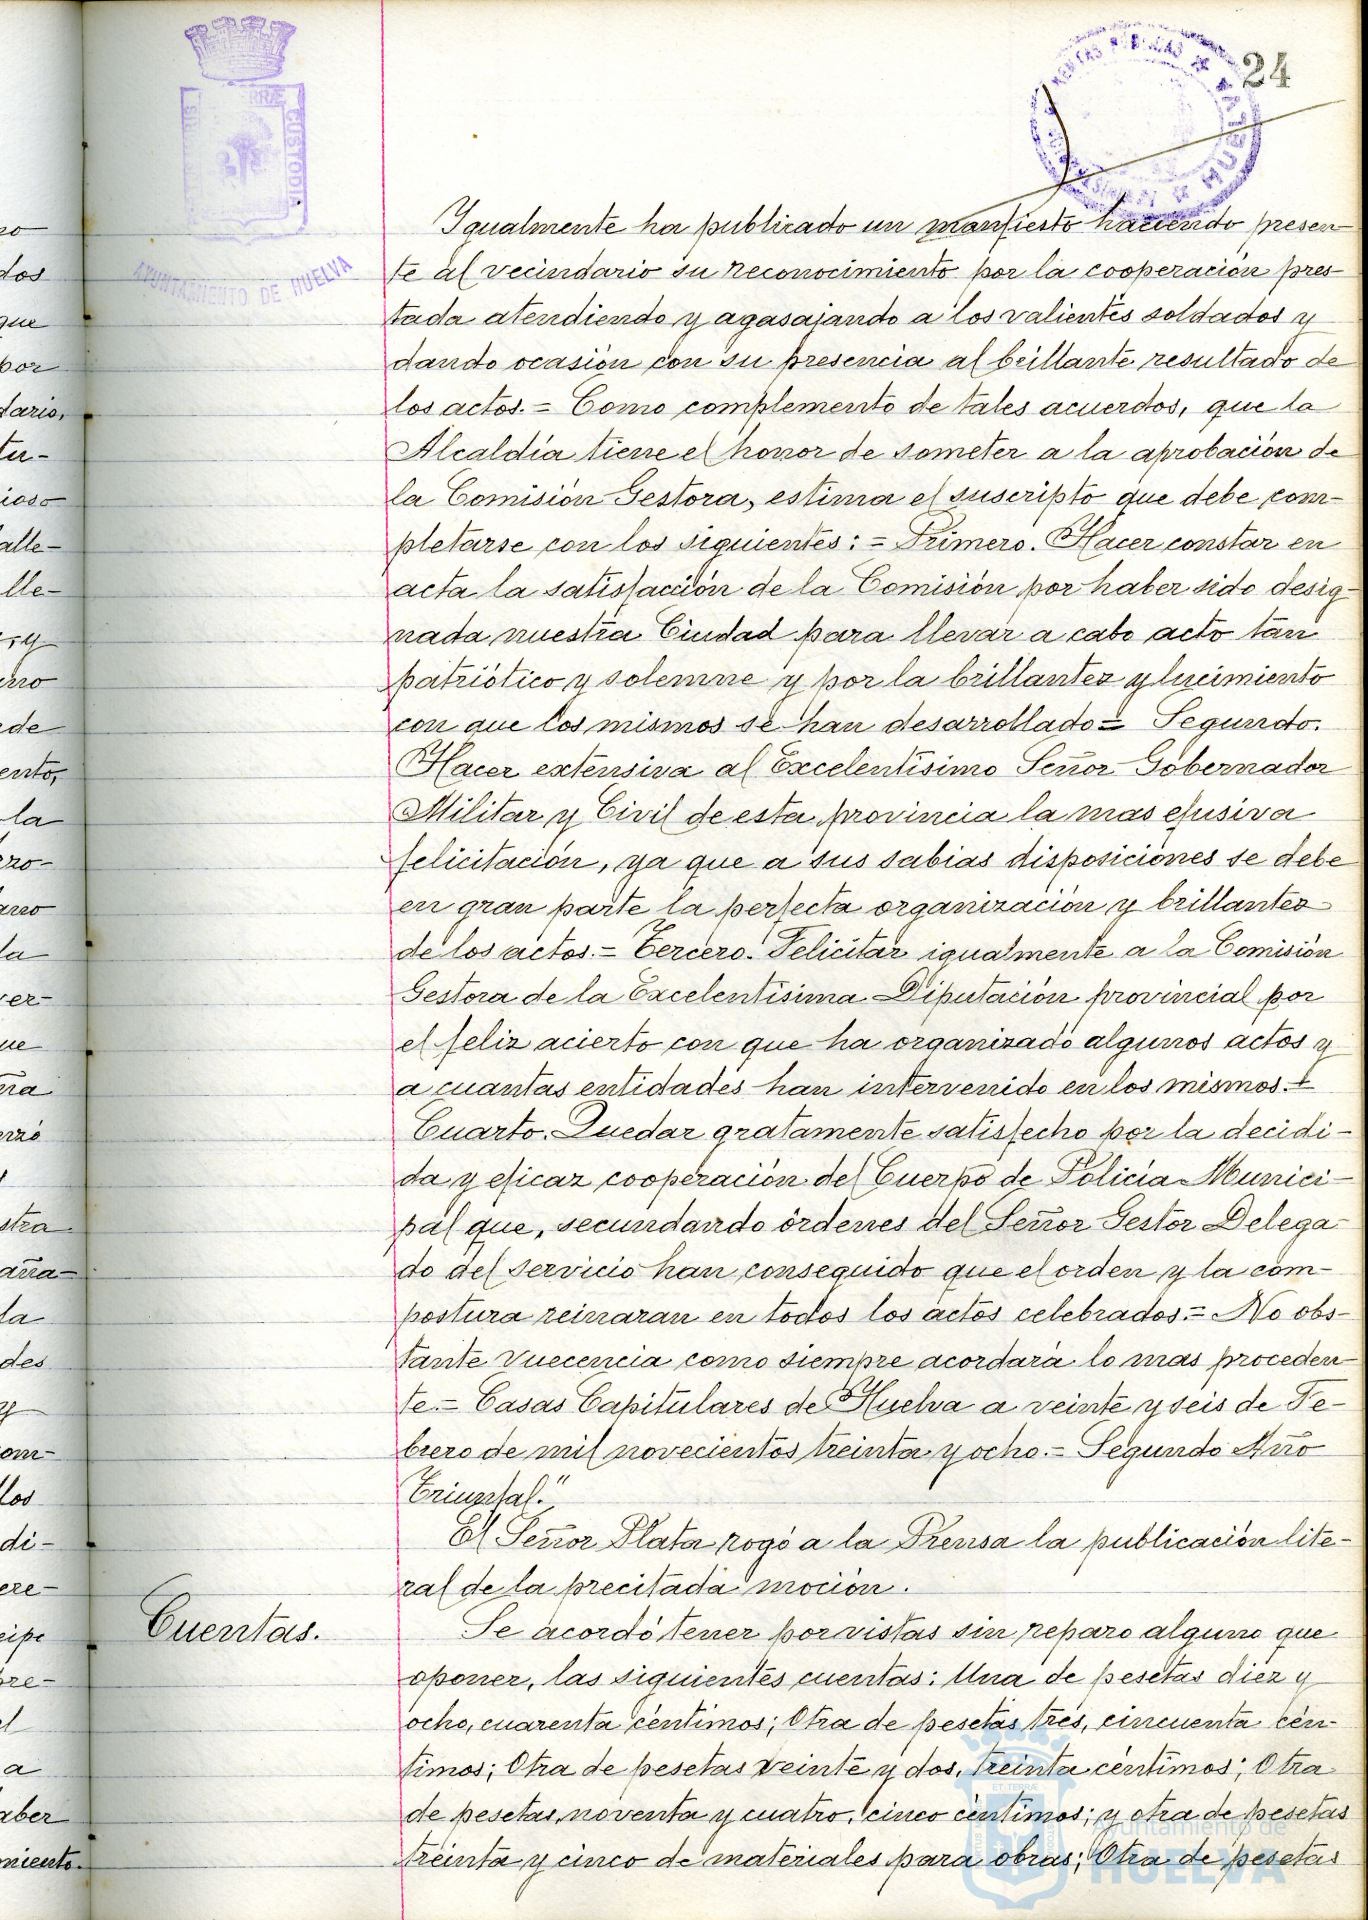 24
AYUNTAMIENTO DE HUELVA
CUSTODIA
HUELVA
Igualmente ha publicado un manfiesto haciendo presen-
te al vecindario su reconocimiento por la cooperación pres-
tada atendiendo y agasajando a los valientes soldados y
dando ocasión con su presencia al brillante resultado de
los actos.= Como complemento de tales acuerdos, que la
Alcaldía tiene el honor de someter a la aprobación de
la Comisión Gestora, estima el suscripto que debe com-
pletarse con los siguientes:= Primero. Hacer constar en
acta la satisfacción de la Comisión por haber sido desig-
nada nuestra Ciudad para llevar a cabo acto tan
patriótico y solemne y por la brillantez y lucimiento
con que los mismos se han desarrollado= Segundo.
Hacer extensiva al Excelentísimo Señor Gobernador
Militar y Civil de esta provincia la mas efusiva
felicitación, ya que a sus sabias disposiciones se debe
en gran parte la perfecta organización y brillantez
de los actos.= Tercero. Felicitar igualmente a la Comisión
Gestora de la Excelentísima Diputación provincial por
el feliz acierto con que ha organizado algunos actos y
a cuantas entidades han intervenido en los mismos.=
Cuarto. Quedar gratamente satisfecho por la decidi-
da y eficaz cooperación del Cuerpo de Policía Munici-
pal que, secundando órdenes del Señor Gestor Delega-
do del servicio han conseguido que el orden y la com-
postura reinaran en todos los actos celebrados.= No obs-
tante vuecencia como siempre acordará lo mas proceden-
te.= Casas Capitulares de Huelva a veinte y seis de Fe-
brero de mil novecientos treinta y ocho.= Segundo Año
Triunfal."
El Señor Plata rogó a la Prensa la publicación lite-
ral de la precitada moción.
Cuentas.
Se acordó tener por vistas sin reparo alguno que
oponer, las siguientes cuentas: Una de pesetas diez y
ocho, cuarenta céntimos; Otra de pesetas tres, cincuenta cén-
timos; Otra de pesetas veinte y dos, treinta céntimos; Otra
de pesetas, noventa y cuatro, cinco céntimos; y otra de pesetas
treinta y cinco de materiales para obras; Otra de pesetas
Ayuntamiento de
HUELVA